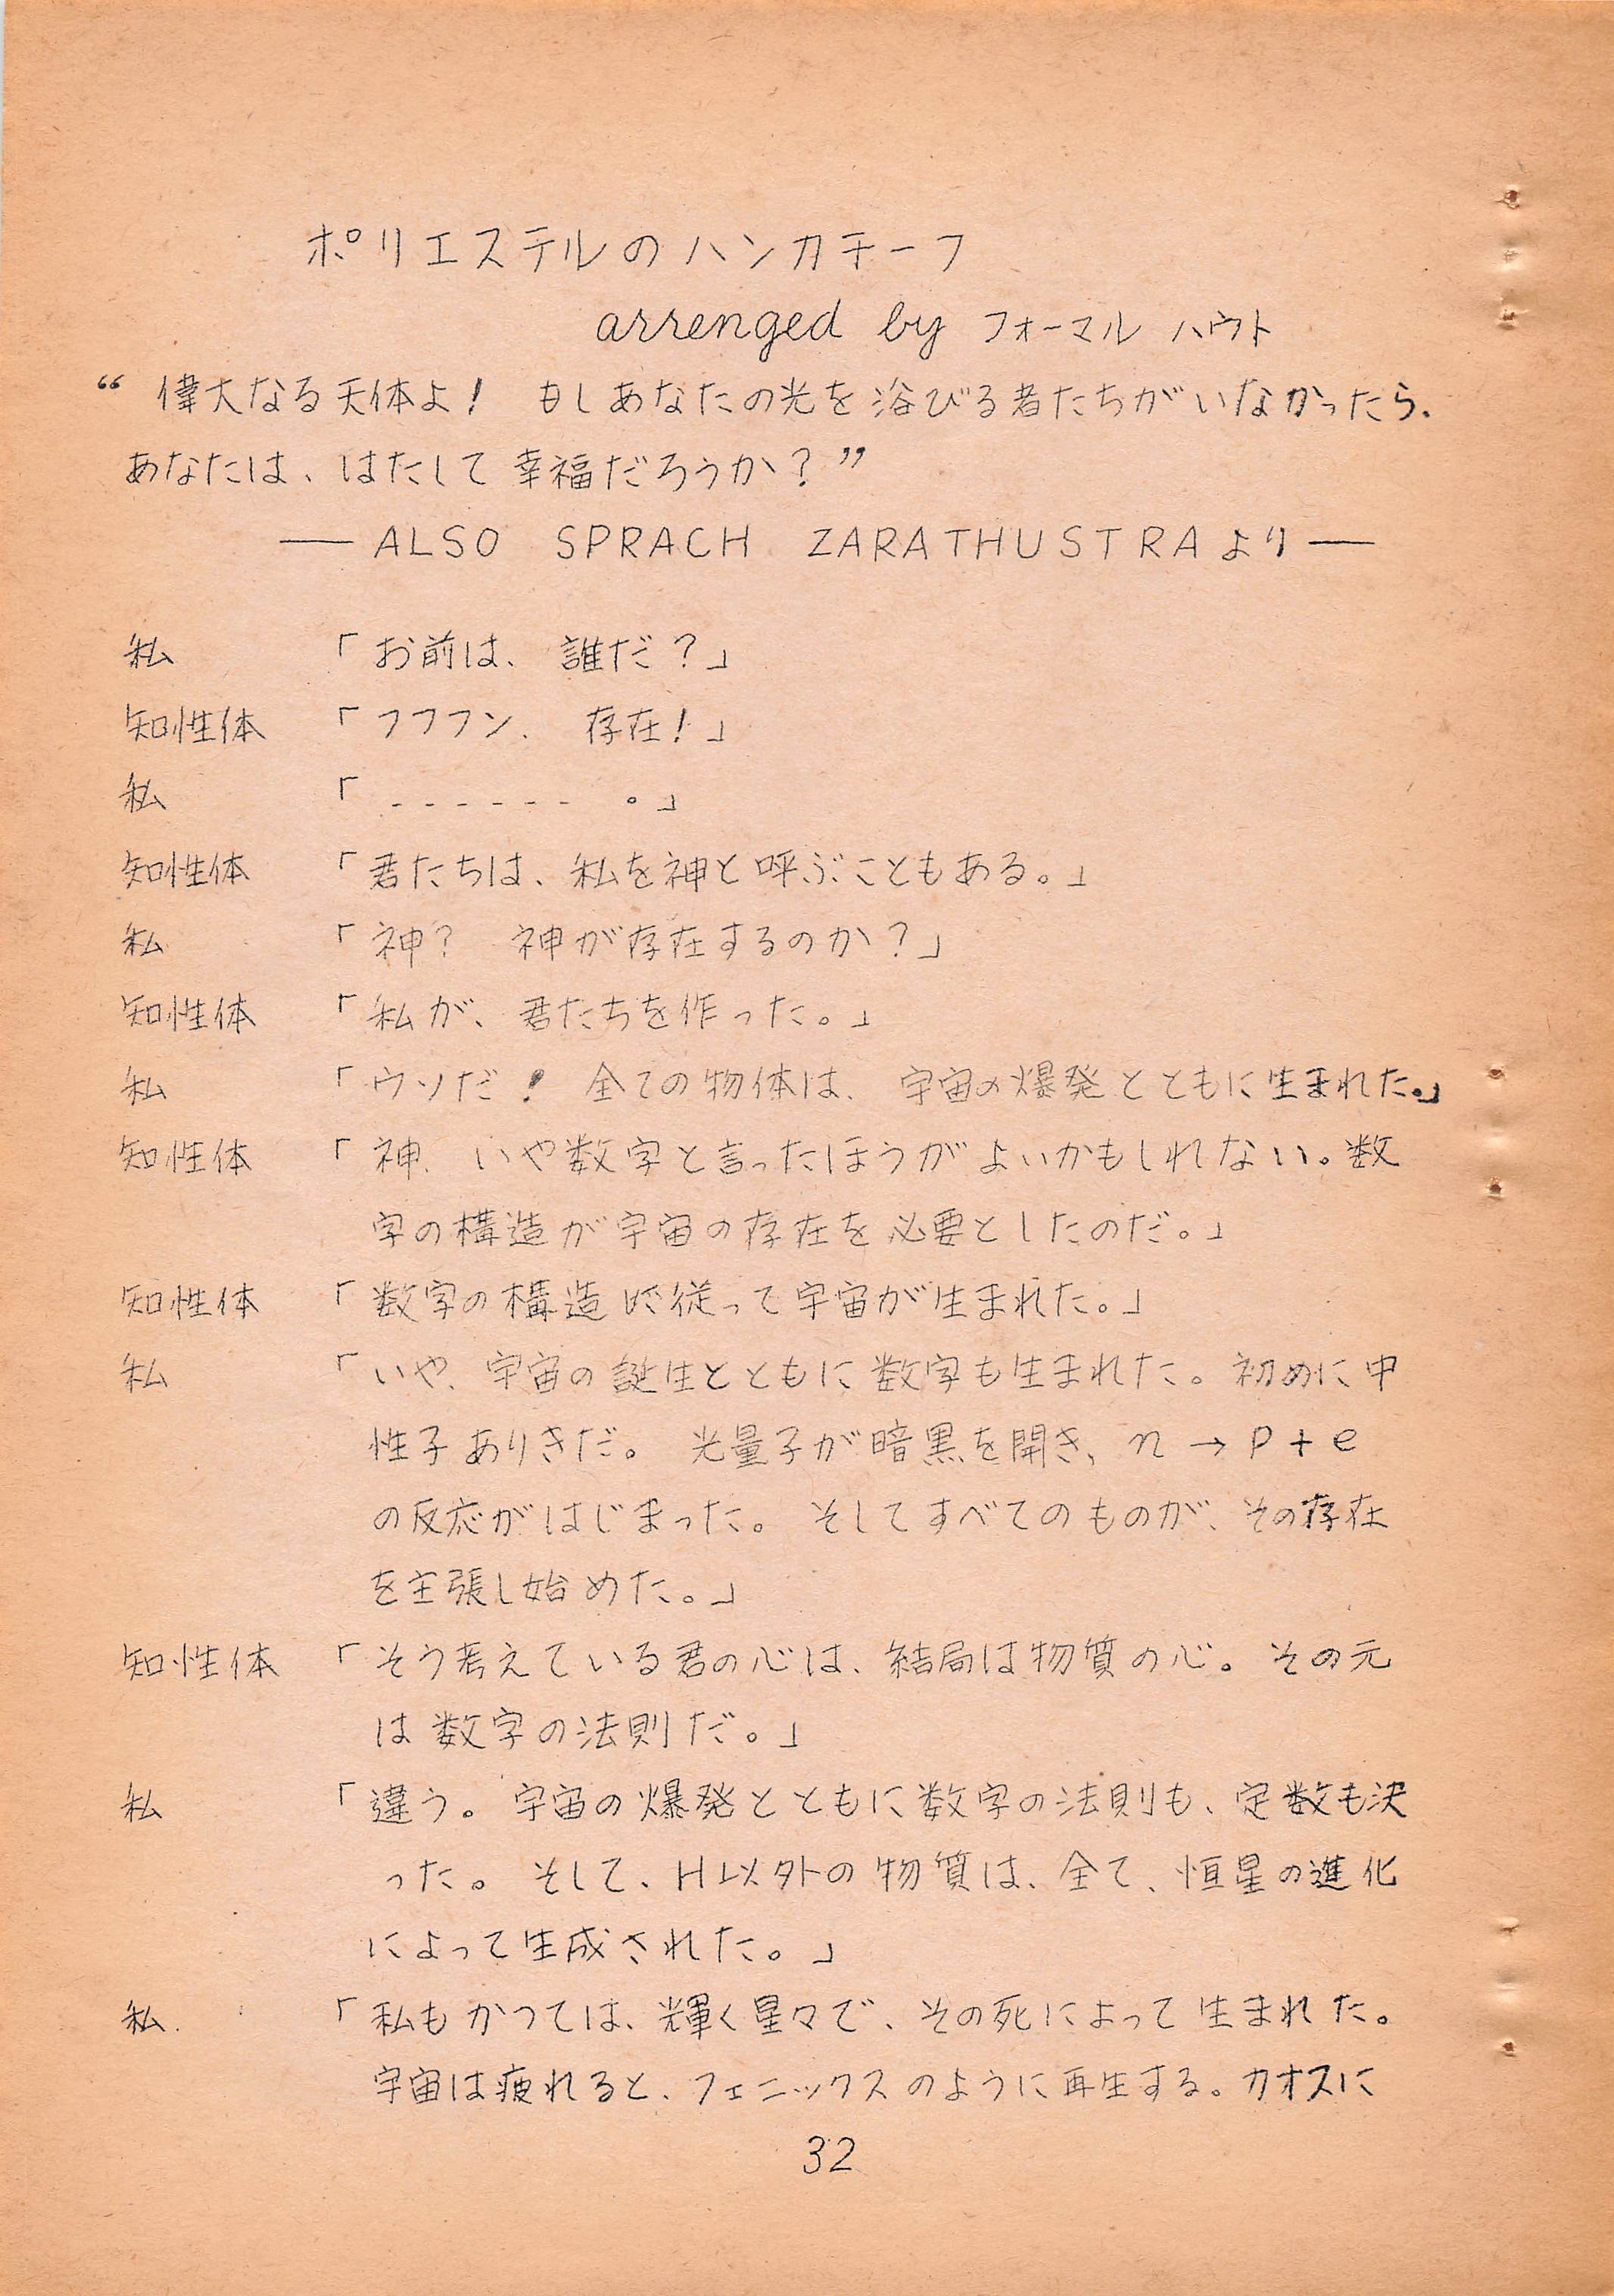 ポリエステルのハンカチーフ
arrenged by フォーマル ハウト
“ 偉大なる天体よ! もしあなたの光を浴びる者たちがいなかったら、
あなたは、はたして幸福だろうか?”
── ALSO SPRACH ZARATHUSTRAより──
私 「お前は、誰だ?」
知性体 「フフフン、 存在!」
私 「------ 。」
知性体 「君たちは、私を神と呼ぶこともある。」
私 「神? 神が存在するのか?」
知性体 「私が、君たちを作った。」
私 「ウソだ! 全ての物体は、宇宙の爆発とともに生まれた。」
知性体 「神、いや数字と言ったほうがよいかもしれない。数
字の構造が宇宙の存在を必要としたのだ。」
知性体 「数字の構造に従って宇宙が生まれた。」
私 「いや、宇宙の誕生とともに数字も生まれた。初めに中
性子ありきだ。 光量子が暗黒を開き、n → p + e
の反応がはじまった。そしてすべてのものが、その存在
を主張し始めた。」
知性体 「そう考えている君の心は、結局は物質の心。その元
は数字の法則だ。」
私 「違う。宇宙の爆発とともに数字の法則も、定数も決
った。そして、H以外の物質は、全て、恒星の進化
によって生成された。」
私 「私もかつては、輝く星々で、その死によって生まれた。
宇宙は疲れると、フェニックスのように再生する。カオスに
32